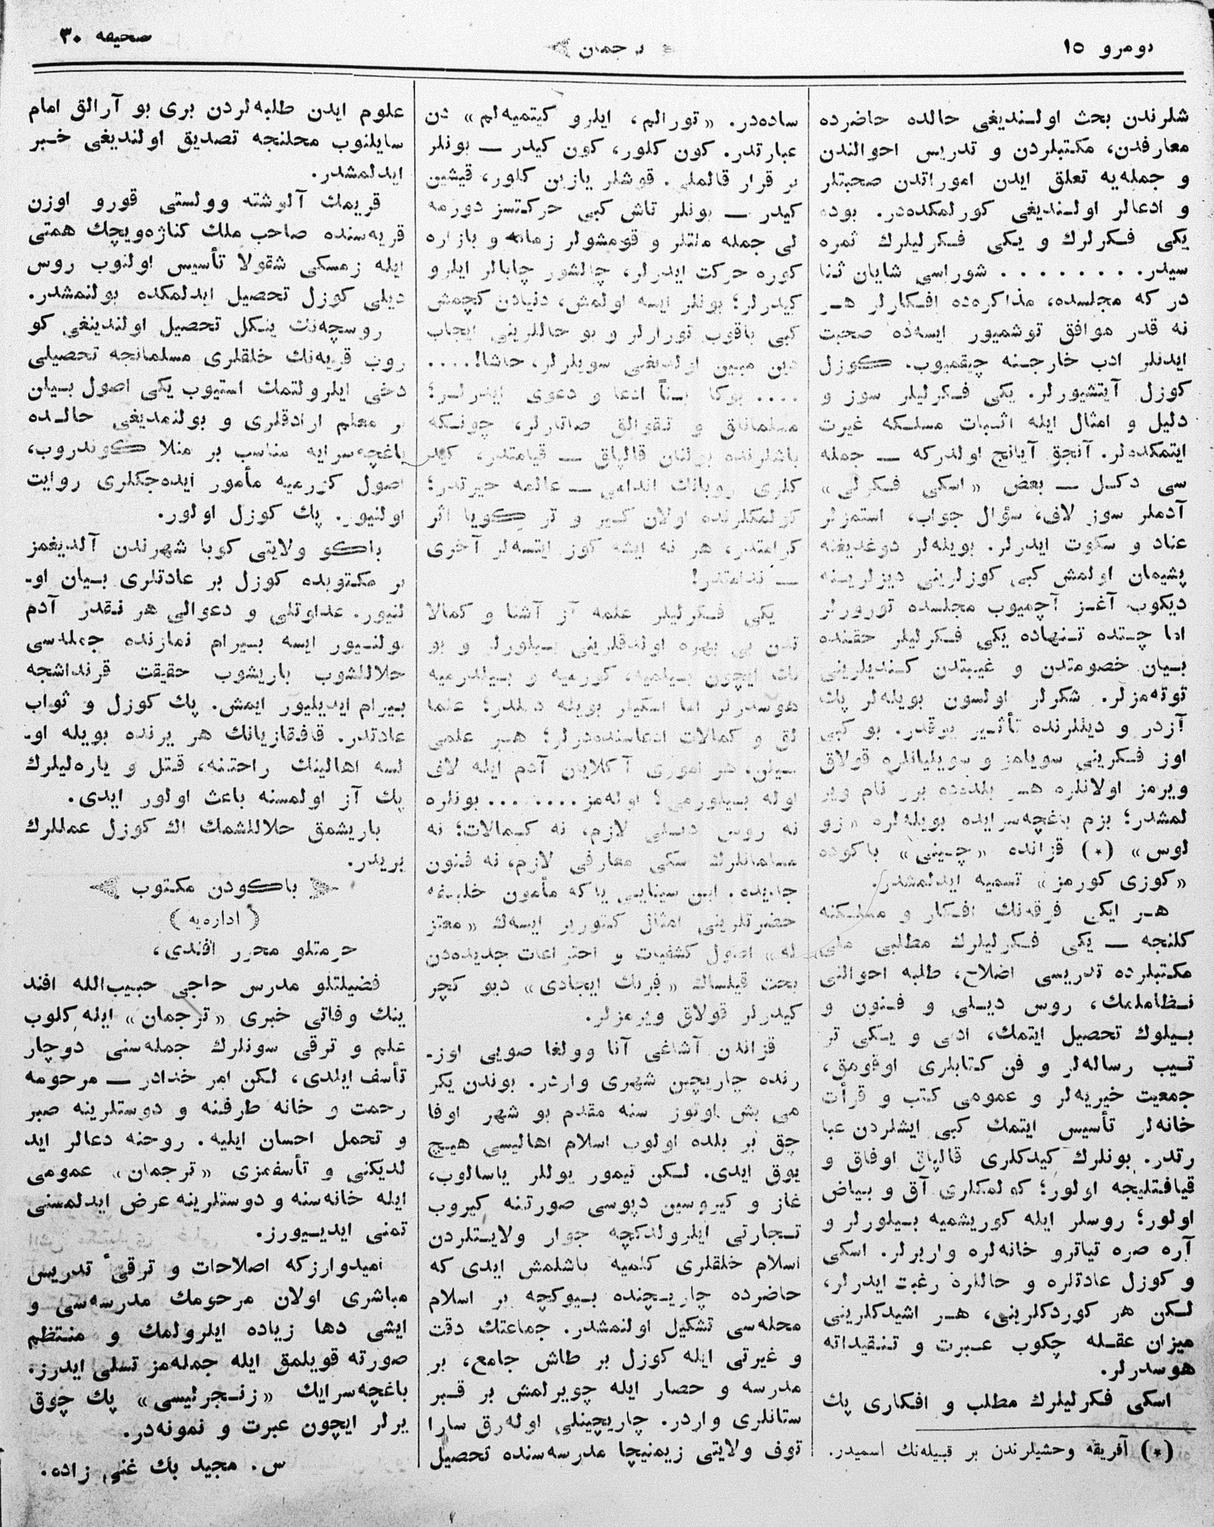 دومرو ١٥
ترجمان
صحیفه ٣٠
شلرندن بحث اولندیغی حالده حاضرده
معارفدن، مکتبلردن و تدریس احوالندن
و جمله‌یه تعلق ایدن اموراتدن صحبتلر
و ادعالر اولندیغی کورلمکده‌در. بوده
یکی فکرلرك و یکی فکرلیلرك ثمره
سیدر. . . . . . . . . شوراسی شایان ثنا
در که مجلسده، مذاکره‌ده افکارلر هر
نه قدر موافق توشمیور ایسه‌ده صحبت
ایدنلر ادب خارجنه چیقمیوب. کوزل
کوزل آیتشیورلر. یکی فکرلیلر سوز و
دلیل و امثال ایله اثبات مسلکه غیرت
ایتمکده‌لر. آنجق آیانچ اولدرکه — جمله
سی دکل — بعض «اسکی فکرلی»
آدملر سوز لاف، سؤال جواب، استمزلر
عناد و سکوت ایدرلر. بویله‌لر دوغدیغنه
پشیمان اولمش کبی کوزلرینی دیزلرینه
دیکوب آغز آچمیوب مجلسده تورورلر
اما چتده تنهاده یکی فکرلیلر حقنده
بیان خصومتدن و غیبتدن کندیلرینی
توته‌مزلر. شکرلر اولسون بویله‌لر پك
آزدر و دیللرنده تأثیر یوقدر. بو کبی
اوز فکرینی سویلمز و سویلیانلره قولاق
ویرمز اولانلره هر بلده‌ده برر نام ویر
لمشدر؛ بزم باغچه‌سرایده بویله‌لره «زو
لوس» (*) قزانده «چینی» باکوده
«کوزی کورمز» تسمیه ایدلمشدر.
هر ایکی فرقه‌نك افکار و مسلکنه
کلنجه — یکی فکرلیلرك مطلبی ملی
مکتبلرده تدریسی اضلاح، طلبه احوالنی
نظاملمك، روس دیلی و فنون و
بیلوك تحصیل ایتمك، ادبی و یکی تر
تیب رساله‌لر و فن کتابلری اوقومق،
جمعیت خیریه‌لر و عمومی کتب و قرأت
خانه‌لر تأسیس ایتمك کبی ایشلردن عبا
رتدر. بونلرك کیدکلری قالپاق اوفاق و
قیافتلیجه اولور؛ کولمکلری آق و بیاض
اولور؛ روسلر ایله کوریشمیه بیلورلر و
آره صره تیاترو خانه‌لره واربرلر. اسکی
و کوزل عادتلره و حاللره رغبت ایدرلر،
لکن هر کوردکلرینی، هر اشیدکلرینی
میزان عقله چکوب عبرت و تنقیداته
هوسدرلر.
اسکی فکرلیلرك مطلب و افکاری پك
(*) آفریقه وحشیلرندن بر قبیله‌نك اسمیدر.
ساده‌در. «تورالم، ایلرو کیتمیه‌لم» دن
عبارتدر. کون کلور، کون کیدر — بونلر
بر قرار قالملی. قوشلر یازین کلور، قیشین
کیدر — بونلر تاش کبی حرکتسز دورمه
لی جمله ملتلر و قومشولر زمانه و بازاره
کوره حرکت ایدرلر، چالشور چابالر ایلرو
کیدرلر؛ بونلر ایسه اولمش، دنیادن کچمش
کبی باقوب تورارلر و بو حاللرینی ایجاب
دین مبین اولدیغی سویلرلر، حاشا!....
.... بوکا بناً ادعا و دعوی ایدرلر؛
مسلمانلق و تقوالق صاتارلر، چونکه
باشلرنده بولنان قالپاق — قیامتدر، کید
کلری روبانك اندامی — عالمه حیرتدر؛
کولمکلرنده اولان کیر و تر کویا اثر
کرامتدر، هر نه ایشه کوز ایتسه‌لر آخری
— ندامتدر!
یکی فکرلیلر علمه آز آشنا و کمالا
تدن بی بهره اولدقلرینی بیلورلر و بو
نك ایچون بیلمیه، کورمیه و بیلدرمیه
هوسدرلر اما اسکیلر بویله دکلدر؛ علما
لق و کمالات ادعاسنده‌درلر؛ هر علمی
بیلن، هر اموری آکلایان آدم ایله لاف
اوله بیلورمی؟ اوله‌مز........ بونلره
نه روس دیلی لازم، نه کمالات؛ نه
مسلمانلرك سکی معارفی لازم، نه فنون
جدیده. ابن سینایی یاکه مأمون خلیفه
حضرتلرینی امثال کتوریر ایسه‌ك «معتز
له» اصول کشفیات و احتراعات جدیده‌دن
بحث قیلساك «فرنك ایجادی» دیو کچر
کیدرلر قولاق ویرمزلر.
قزاندن آشاغی آنا وولغا صویی اوز
رنده چاریچین شهری واردر. بوندن یکر
می بش اوتوز سنه مقدم بو شهر اوفا
جق بر بلده اولوب اسلام اهالیسی هیچ
یوق ایدی. لکن تیمور یوللر یاسالوب،
غاز و کیروسین دپوسی صورتنه کیروب
تجارتی ایلرولدکچه جوار ولایتلردن
اسلام خلقلری کلمیه باشلمش ایدی که
حاضرده چاریچنده بیوکچه بر اسلام
محله‌سی تشکیل اولنمشدر. جماعتك دقت
و غیرتی ایله کوزل بر طاش جامع، بر
مدرسه و حصار ایله چویرلمش بر قبر
ستانلری واردر. چاریچینلی اوله‌رق سارا
توف ولایتی زیمنیچا مدرسه‌سنده تحصیل
علوم ایدن طلبه‌لردن بری بو آرالق امام
سایلنوب محلنجه تصدیق اولندیغی خبر
ایدلمشدر.
قریمك آلوشته وولستی قورو اوزن
قریه‌سنده صاحب ملك کناژه‌ویچك همتی
ایله زمسکی شقولا تأسیس اولنوب روس
دیلی کوزل تحصیل ایدلمکده بولنمشدر.
روسچه‌نك یکل تحصیل اولندیغی کو
روب قریه‌نك خلقلری مسلمانجه تحصیلی
دخی ایلرولتمك استیوب یکی اصول بیلن
بر معلم ارادقلری و بولنمدیغی حالده
باغچه‌سرایه مناسب بر منلا کوندروب،
اصول کورمیه مأمور ایده‌جکلری روایت
اولنیور. پك کوزل اولور.
باکو ولایتی کوبا شهرندن آلدیغمز
بر مکتوبده کوزل بر عادتلری بیان او
لنیور. عداوتلی و دعوالی هر نقدر آدم
بولنیور ایسه بیرام نمازنده جمله‌سی
حلاللشوب باریشوب حقیقت قرنداشجه
بیرام ایدیلیور ایمش. پك کوزل و ثواب
عادتدر. قافقازیانك هر یرنده بویله او
لسه اهالینك راحتنه، قتل و یاره‌لیلرك
پك آز اولمسنه باعث اولور ایدی.
باریشمق حلاللشمك اك کوزل عمللرك
بریدر.
باکودن مکتوب
(اداره‌یه)
حرمتلو محرر افندی،
فضیلتلو مدرس حاجی حبیب‌الله افند
ینك وفاتی خبری «ترجمان» ایله کلوب
علم و ترقی سونلرك جمله‌سنی دوچار
تأسف ایلدی، لکن امر خدادر — مرحومه
رحمت و خانه طرفنه و دوستلرینه صبر
و تحمل احسان ایلیه. روحنه دعالر اید
لدیکنی و تأسفمزی «ترجمان» عمومی
ایله خانه‌سنه و دوستلرینه عرض ایدلمسنی
تمنی ایدییورز.
امیدوارزکه اصلاحات و ترقیٔ تدریس
مباشری اولان مرحومك مدرسه‌سی و
ایشی دها زیاده ایلرولمك و منتظم
صورته قویلمق ایله جمله‌مز تسلی ایدرز.
باغچه‌سرایك «زنجرلیسی» پك چوق
یرلر ایچون عبرت و نمونه‌در.
س. مجید بك غنی زاده.